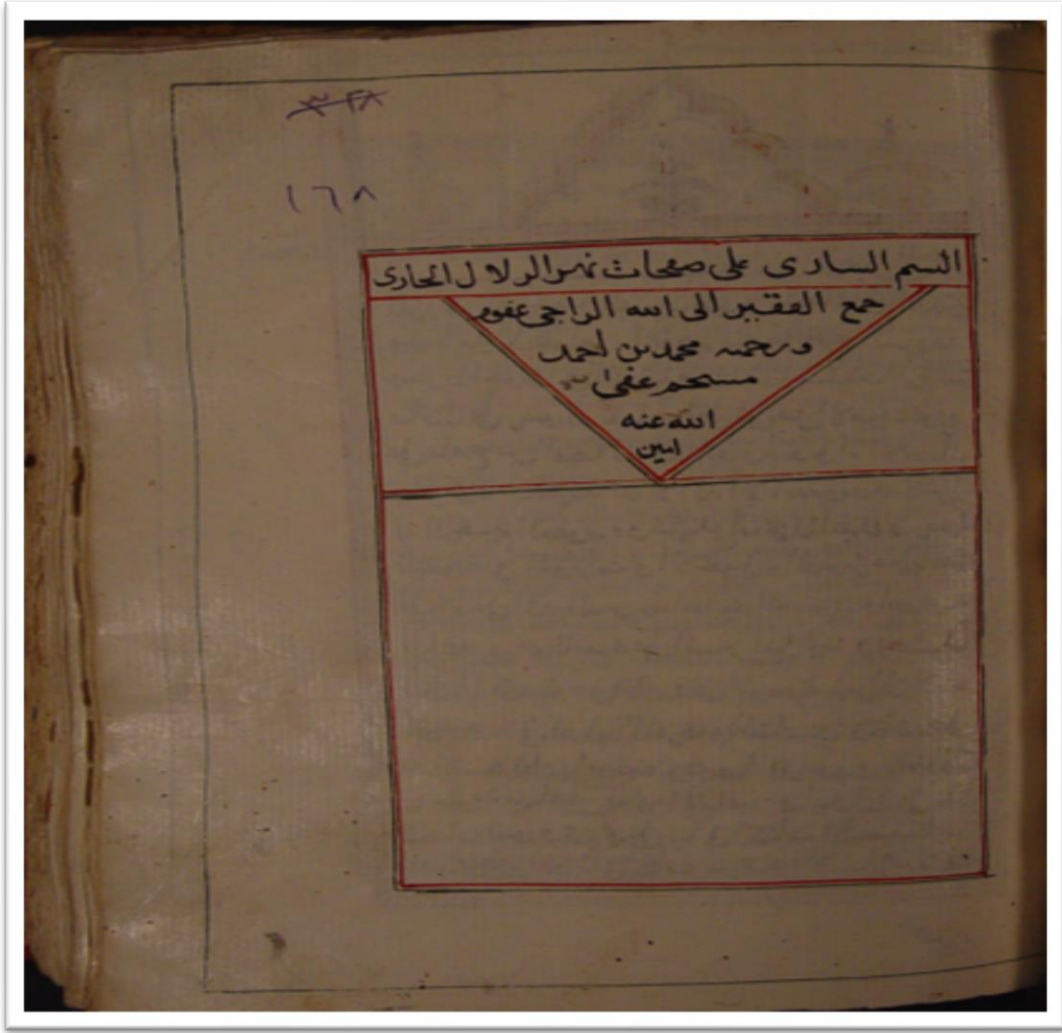 ٣٢٨
١٦٨
النسم السارى على صفحات نهر الزلال الجارى
جمع الفقير الى الله الراجى عفوه
ورحمته محمد بن أحمد
مسحم عفى
الله عنه
امين